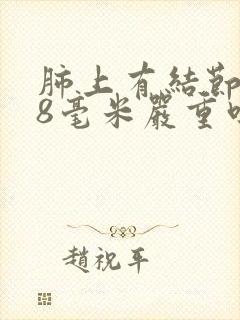 肺上有結節
8毫米嚴重
趙祝平